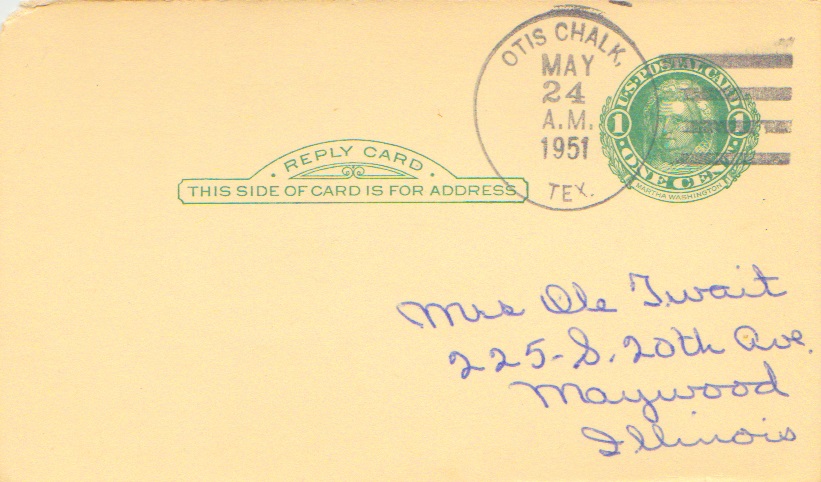 OTIS CHALK,
MAY
24
A.M.
1951
TEX.
U.S. POSTAL CARD
1 1
ONE CENT
MARTHA WASHINGTON
REPLY CARD
THIS SIDE OF CARD IS FOR ADDRESS
Mrs Ole Twait
225-S. 20th Ave.
Maywood
Illinois